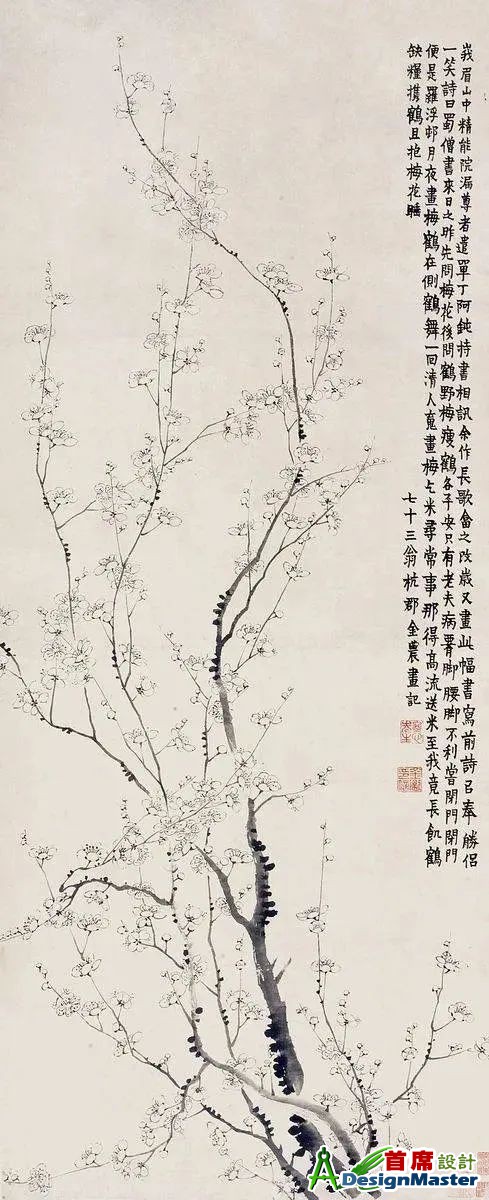 峩眉山中精能院漏尊者遣單丁阿鈍持書相訊余作長歌畣之改歲又畫此幅書寫前詩已奉勝侶
一笑詩曰蜀僧書來日之昨先問梅花後問鶴野梅瘦鶴各平安只有老夫病腰脚腰脚不利嘗閉門閉門
便是羅浮邨月夜畫梅鶴在側鶴舞一回清人䰟畫梅乞米尋常事那得高流送米至我竟長飢鶴
缺糧攜鶴且抱梅花睡
七十三翁杭郡金農畫記
首席設計
DesignMaster